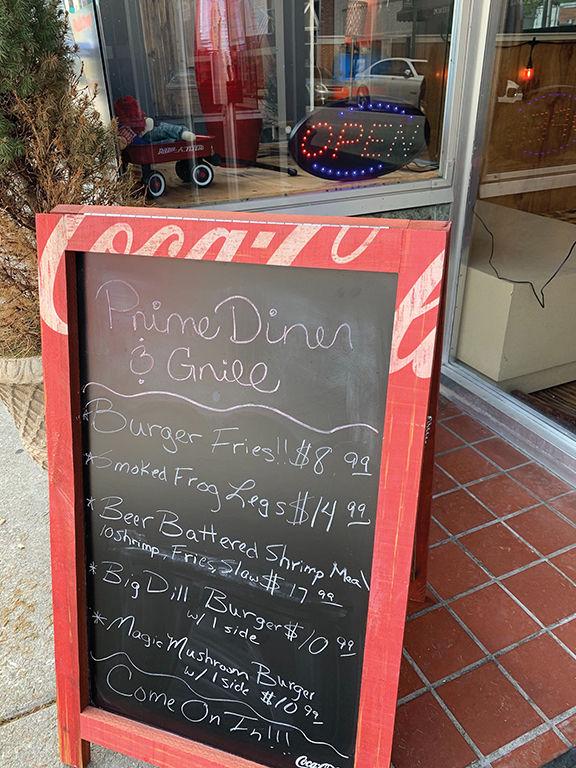 RADIO FLYER
OPEN
Coca-Co
Prime Diner
& Grill
*Burger Fries!! $8.99
*Smoked Frog Legs $14.99
*Beer Battered Shrimp Meal
10 shrimp, Fries, Slaw $17.99
*Big Dill Burger $10.99
w/ 1 side
*Magic Mushroom Burger
w/ 1 side $10.99
Come On In!!!
Coca-